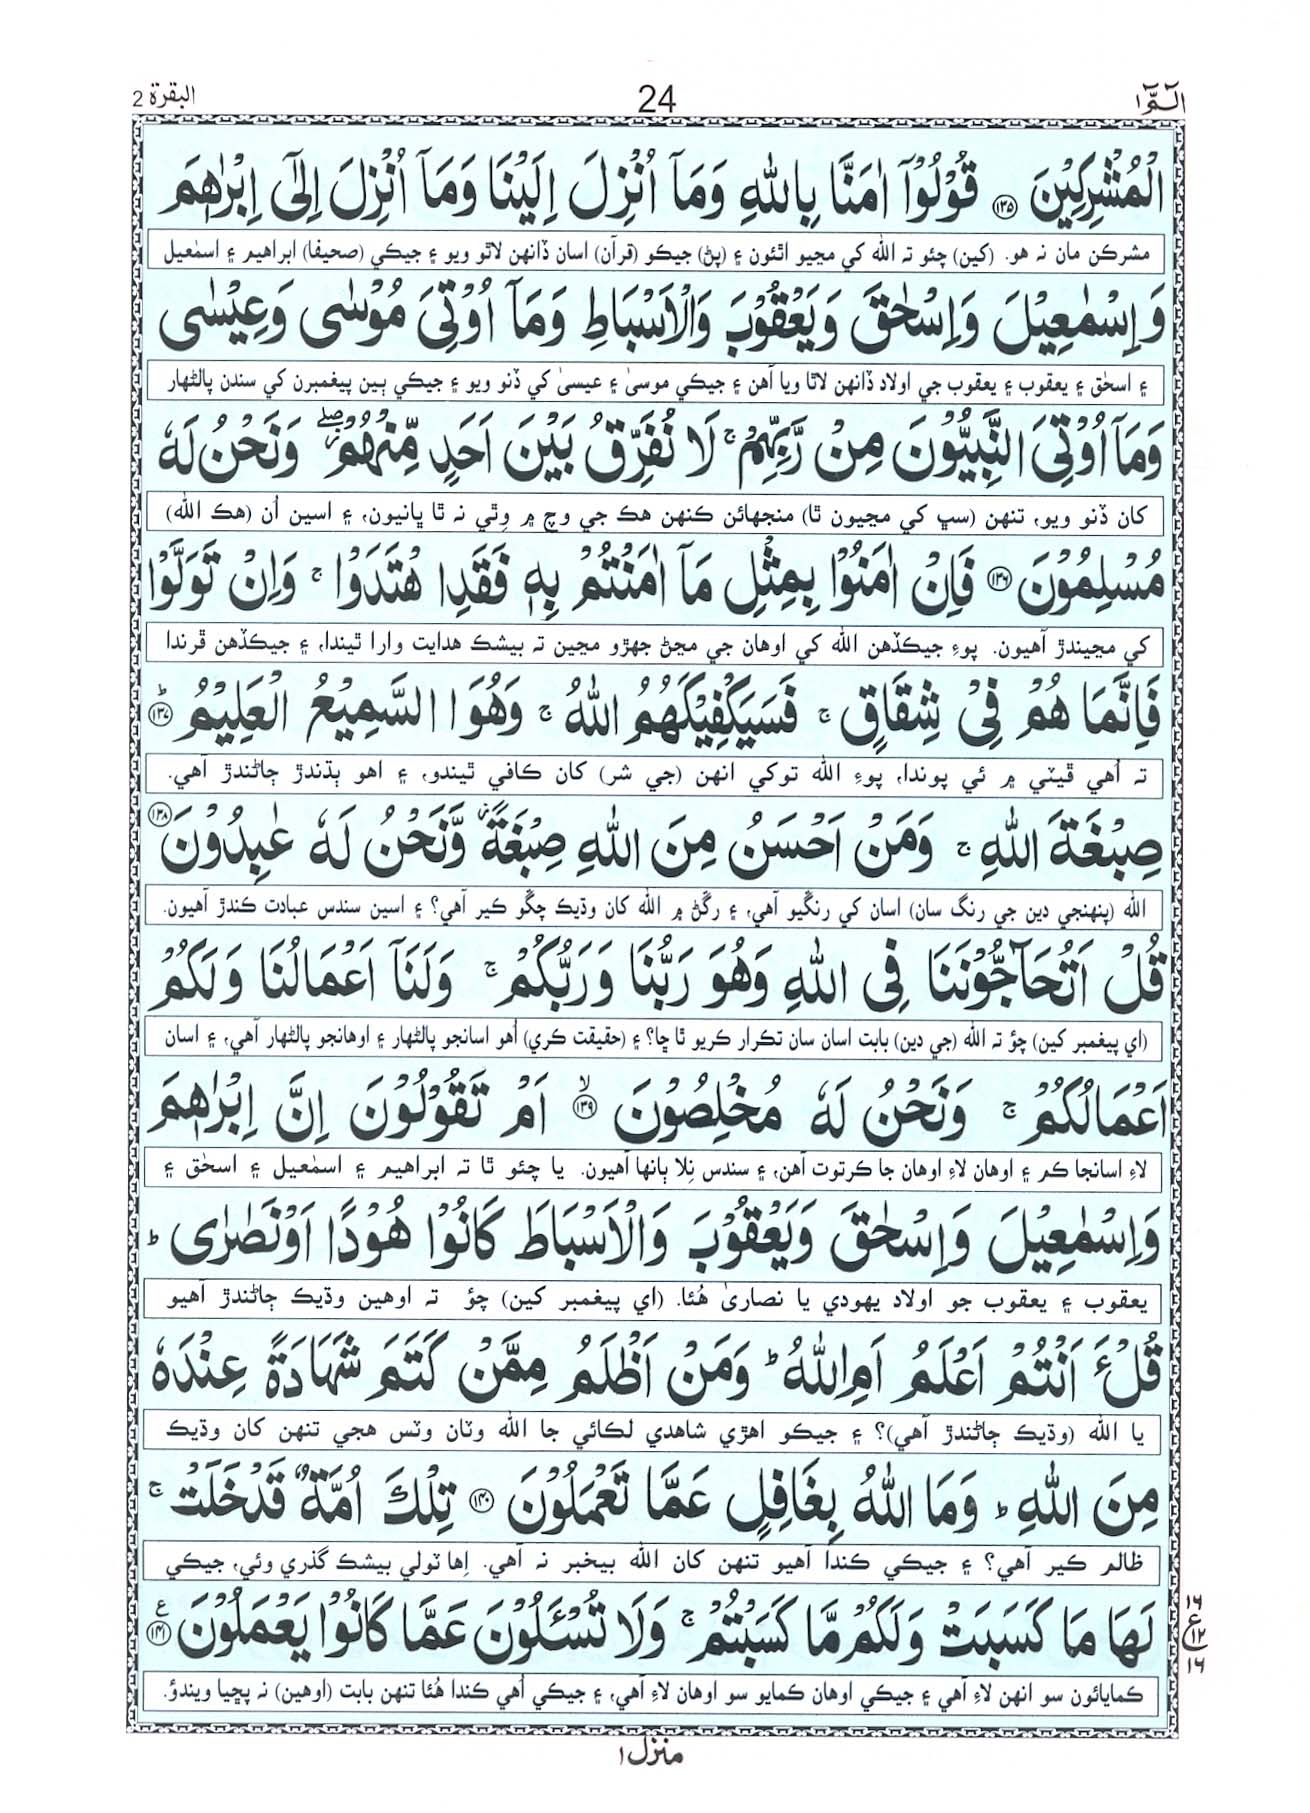 الٓـمّٓ ١
24
البقرة 2
الْمُشْرِكِيْنَ ۝۱۳۵ قُوْلُوْٓا اٰمَنَّا بِاللّٰهِ وَمَآ اُنْزِلَ اِلَيْنَا وَمَآ اُنْزِلَ اِلٰٓى اِبْرٰهٖمَ
مشرڪن مان نہ هو. (کين) چئو تہ الله کي مڃيو اٿئون ۽ (پڻ) جيڪو (قرآن) اسان ڏانهن لاٿو ويو ۽ جيڪي (صحيفا) ابراهيم ۽ اسمٰعيل
وَاِسْمٰعِيْلَ وَاِسْحٰقَ وَيَعْقُوْبَ وَالْاَسْبَاطِ وَمَآ اُوْتِىَ مُوْسٰى وَعِيْسٰى
۽ اسحٰق ۽ يعقوب ۽ يعقوب جي اولاد ڏانهن لاٿا ويا آهن ۽ جيڪي موسىٰ ۽ عيسىٰ کي ڏنو ويو ۽ جيڪي ٻين پيغمبرن کي سندن پالڻهار
وَمَآ اُوْتِىَ النَّبِيُّوْنَ مِنْ رَّبِّهِمْ ۚ لَا نُفَرِّقُ بَيْنَ اَحَدٍ مِّنْهُمْ ۖ وَنَحْنُ لَهٗ
کان ڏنو ويو، تنهن (سڀ کي مڃيون ٿا) منجهائن ڪنهن هڪ جي وچ ۾ وِٿي نہ ٿا ڀانيون، ۽ اسين اُن (هڪ الله)
مُسْلِمُوْنَ ۝۱۳۶ فَاِنْ اٰمَنُوْا بِمِثْلِ مَآ اٰمَنْتُمْ بِهٖ فَقَدِا هْتَدَوْا ۚ وَاِنْ تَوَلَّوْا
کي مڃيندڙ آهيون. پوءِ جيڪڏهن الله کي اوهان جي مڃڻ جهڙو مڃين تہ بيشڪ هدايت وارا ٿيندا، ۽ جيڪڏهن ڦرندا
فَاِنَّمَا هُمْ فِىْ شِقَاقٍ ۚ فَسَيَكْفِيْكَهُمُ اللّٰهُ ۚ وَهُوَ السَّمِيْعُ الْعَلِيْمُ ۝۱۳۷ؕ
تہ اُهي ڦيٽي ۾ ئي پوندا، پوءِ الله توکي انهن (جي شر) کان ڪافي ٿيندو، ۽ اهو ٻڌندڙ ڄاڻندڙ آهي.
صِبْغَةَ اللّٰهِ ۚ وَمَنْ اَحْسَنُ مِنَ اللّٰهِ صِبْغَةً ز وَّنَحْنُ لَهٗ عٰبِدُوْنَ ۝۱۳۸
الله (پنهنجي دين جي رنگ سان) اسان کي رنڱيو آهي، ۽ رڱڻ ۾ الله کان وڌيڪ چڱو ڪير آهي؟ ۽ اسين سندس عبادت ڪندڙ آهيون.
قُلْ اَتُحَآجُّوْنَنَا فِى اللّٰهِ وَهُوَ رَبُّنَا وَرَبُّكُمْ ۚ وَلَنَآ اَعْمَالُنَا وَلَكُمْ
(اي پيغمبر کين) چؤ تہ الله (جي دين) بابت اسان سان تڪرار ڪريو ٿا ڇا؟ ۽ (حقيقت ڪري) اُهو اسانجو پالڻهار ۽ اوهانجو پالڻهار آهي، ۽ اسان
اَعْمَالُكُمْ ۚ وَنَحْنُ لَهٗ مُخْلِصُوْنَ ۝۱۳۹ۙ اَمْ تَقُوْلُوْنَ اِنَّ اِبْرٰهٖمَ
لاءِ اسانجا ڪم ۽ اوهان لاءِ اوهان جا ڪرتوت آهن، ۽ سندس نِلا ٻانها آهيون. يا چئو ٿا تہ ابراهيم ۽ اسمٰعيل ۽ اسحٰق ۽
وَاِسْمٰعِيْلَ وَاِسْحٰقَ وَيَعْقُوْبَ وَالْاَسْبَاطَ كَانُوْا هُوْدًا اَوْ نَصٰرٰى ؕ
يعقوب ۽ يعقوب جو اولاد يهودي يا نصارىٰ هُئا. (اي پيغمبر کين) چؤ تہ اوهين وڌيڪ ڄاڻندڙ آهيو
قُلْ ءَ اَنْتُمْ اَعْلَمُ اَمِ اللّٰهُ ؕ وَمَنْ اَظْلَمُ مِمَّنْ كَتَمَ شَهَادَةً عِنْدَهٗ
يا الله (وڌيڪ ڄاڻندڙ آهي)؟ ۽ جيڪو اهڙي شاهدي لڪائي جا الله وٽان وٽس هجي تنهن کان وڌيڪ
مِنَ اللّٰهِ ؕ وَمَا اللّٰهُ بِغَافِلٍ عَمَّا تَعْمَلُوْنَ ۝۱۴۰ تِلْكَ اُمَّةٌ قَدْ خَلَتْ ۚ
ظالم ڪير آهي؟ ۽ جيڪي ڪندا آهيو تنهن کان الله بيخبر نہ آهي. اِها ٽولي بيشڪ گذري وئي، جيڪي
لَهَا مَا كَسَبَتْ وَلَكُمْ مَّا كَسَبْتُمْ ۚ وَلَا تُسْـَٔلُوْنَ عَمَّا كَانُوْا يَعْمَلُوْنَ ۝۱۴۱ ع
۱۶
ع ۱۲
۱۶
ڪمايائون سو انهن لاءِ آهي ۽ جيڪي اوهان ڪمايو سو اوهان لاءِ آهي، ۽ جيڪي اُهي ڪندا هُئا تنهن بابت (اوهين) نہ پڇيا ويندؤ.
منزل ١